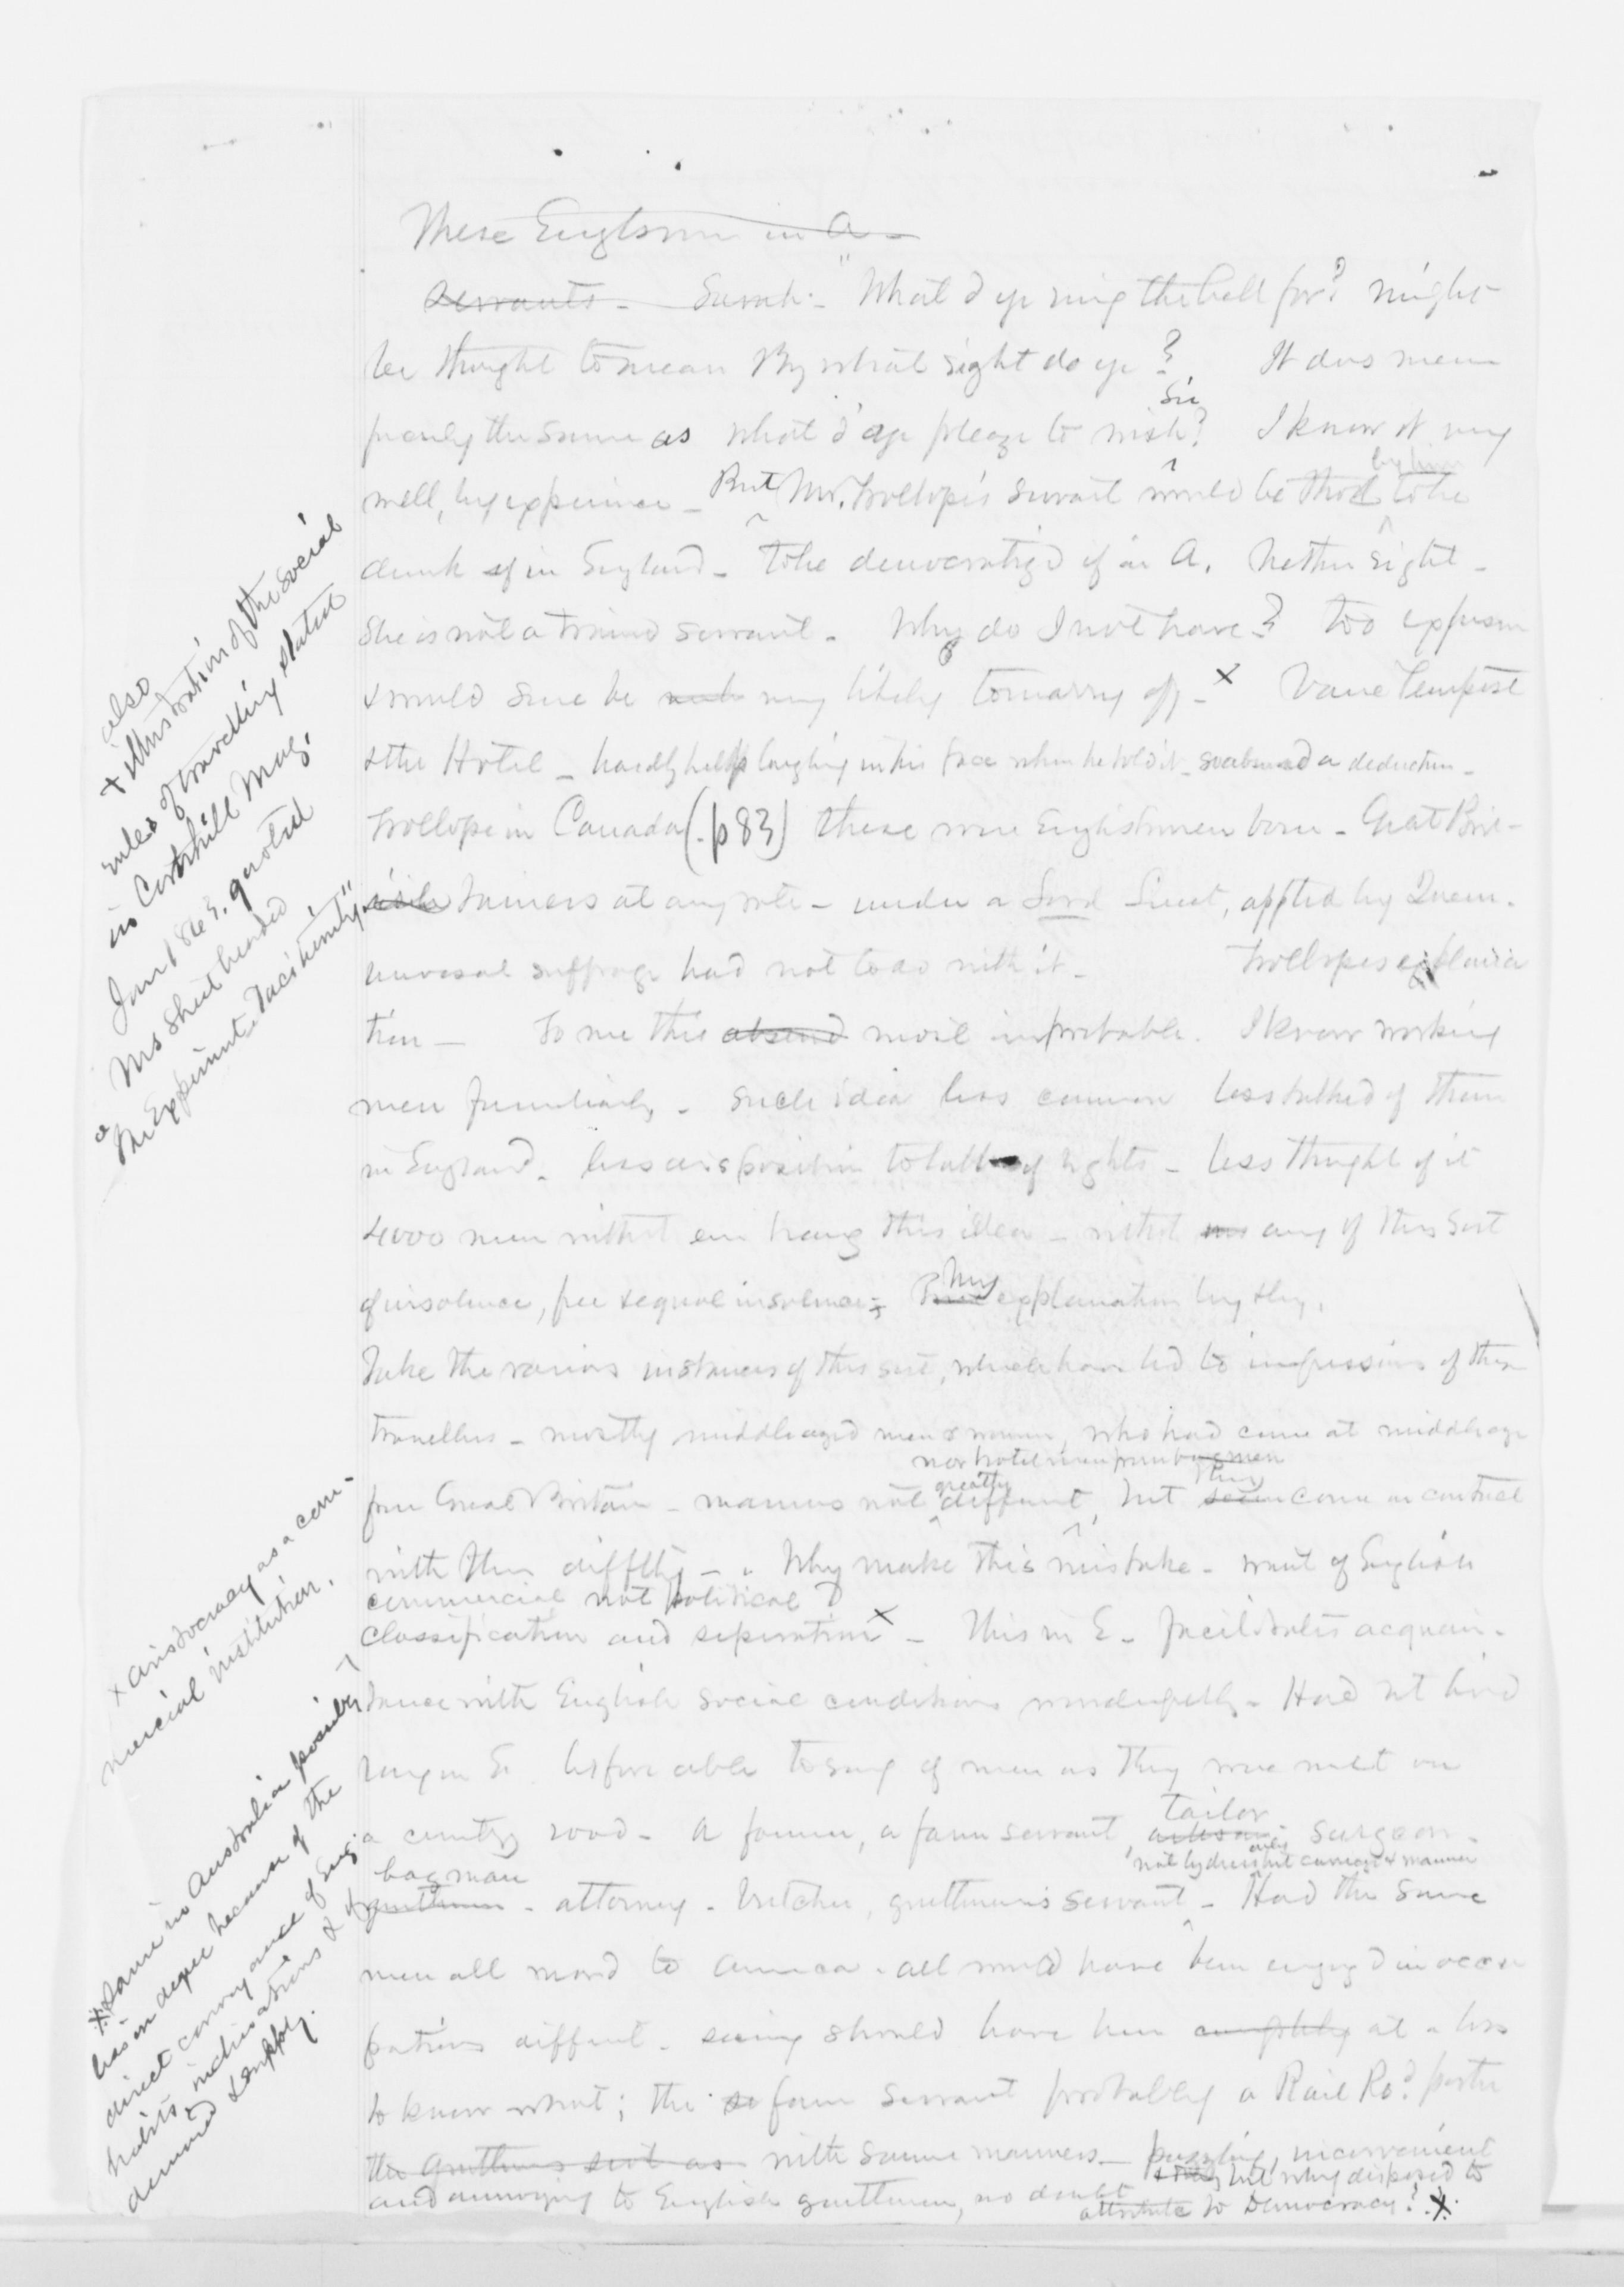 These Englishmen in A.
Servants - Sarah - "What d'ye ring the bell for? might
be thought to mean By what right do ye? It does mean
the same as what d'ye please to wish Sir? I know it very
well, by experience - But Mr. Trollope's servant would be thot by him to be
drunk if in England - to be democratized if in A. Neither right -
She is not a trained servant. Why do I not have? too expensive
& would sure be very likely to marry off - x Vane Tempest
& the Hotel - hardly help laughing in his face when he told it - so absurd a deduction -
Trollope in Canada (p 83) these were Englishmen born - Great Brit-
ainers at any rate - under a Lord Lieut, apptd by Queen.
universal suffrage had not to do with it - Trollope's explana
tion - To me this absurd most improbable. I know working
men familiarly - such idea less common less talked of than
in England - less disposition to talk of rights - less thought of it
4000 men without ever having this idea - without any of this sort
of insolence, free & equal insolence; My explanation by & by.
Take the various instances of this sort, which have led to impressions of these
travellers - mostly middle aged men & women, who had come at middle age
from Great Britain - manners not greatly different, but they come in contact
nor hotel men from bagmen
with them difftly - Why make this mistake - want of English
commercial not political
classification and separation x - This in E. facilitates acquain-
tance with English social conditions wonderfully - Had not lived
long in E. before able to say of men as they were met on
a country road - a farmer, a farm servant, artisan tailor surgeon -
not by dress only but carriage & manner
gentleman bagman - attorney - butcher, gentleman's servant - Had the same
men all moved to America - all would have been engaged in occu
pations different - seeing should have been completely at a loss
to know what; the farm servant probably a Rail Rd. porter
the gentleman's with same manners - puzzling, inconvenient
and annoying to English gentlemen, no doubt but why disposed to
attribute to Democracy? x
also
x illustration of the social
rules of travelling stated
in Cornhill Mag.
Jan 1863. quoted
Ms sheet headed
"The Experiment. Taciturnity"
x aristocracy as a com-
mercial institution.
x Same in Australia possibly
less in degree because of the
direct conveyance of Eng.
habits, inclinations & of
demand & supply.